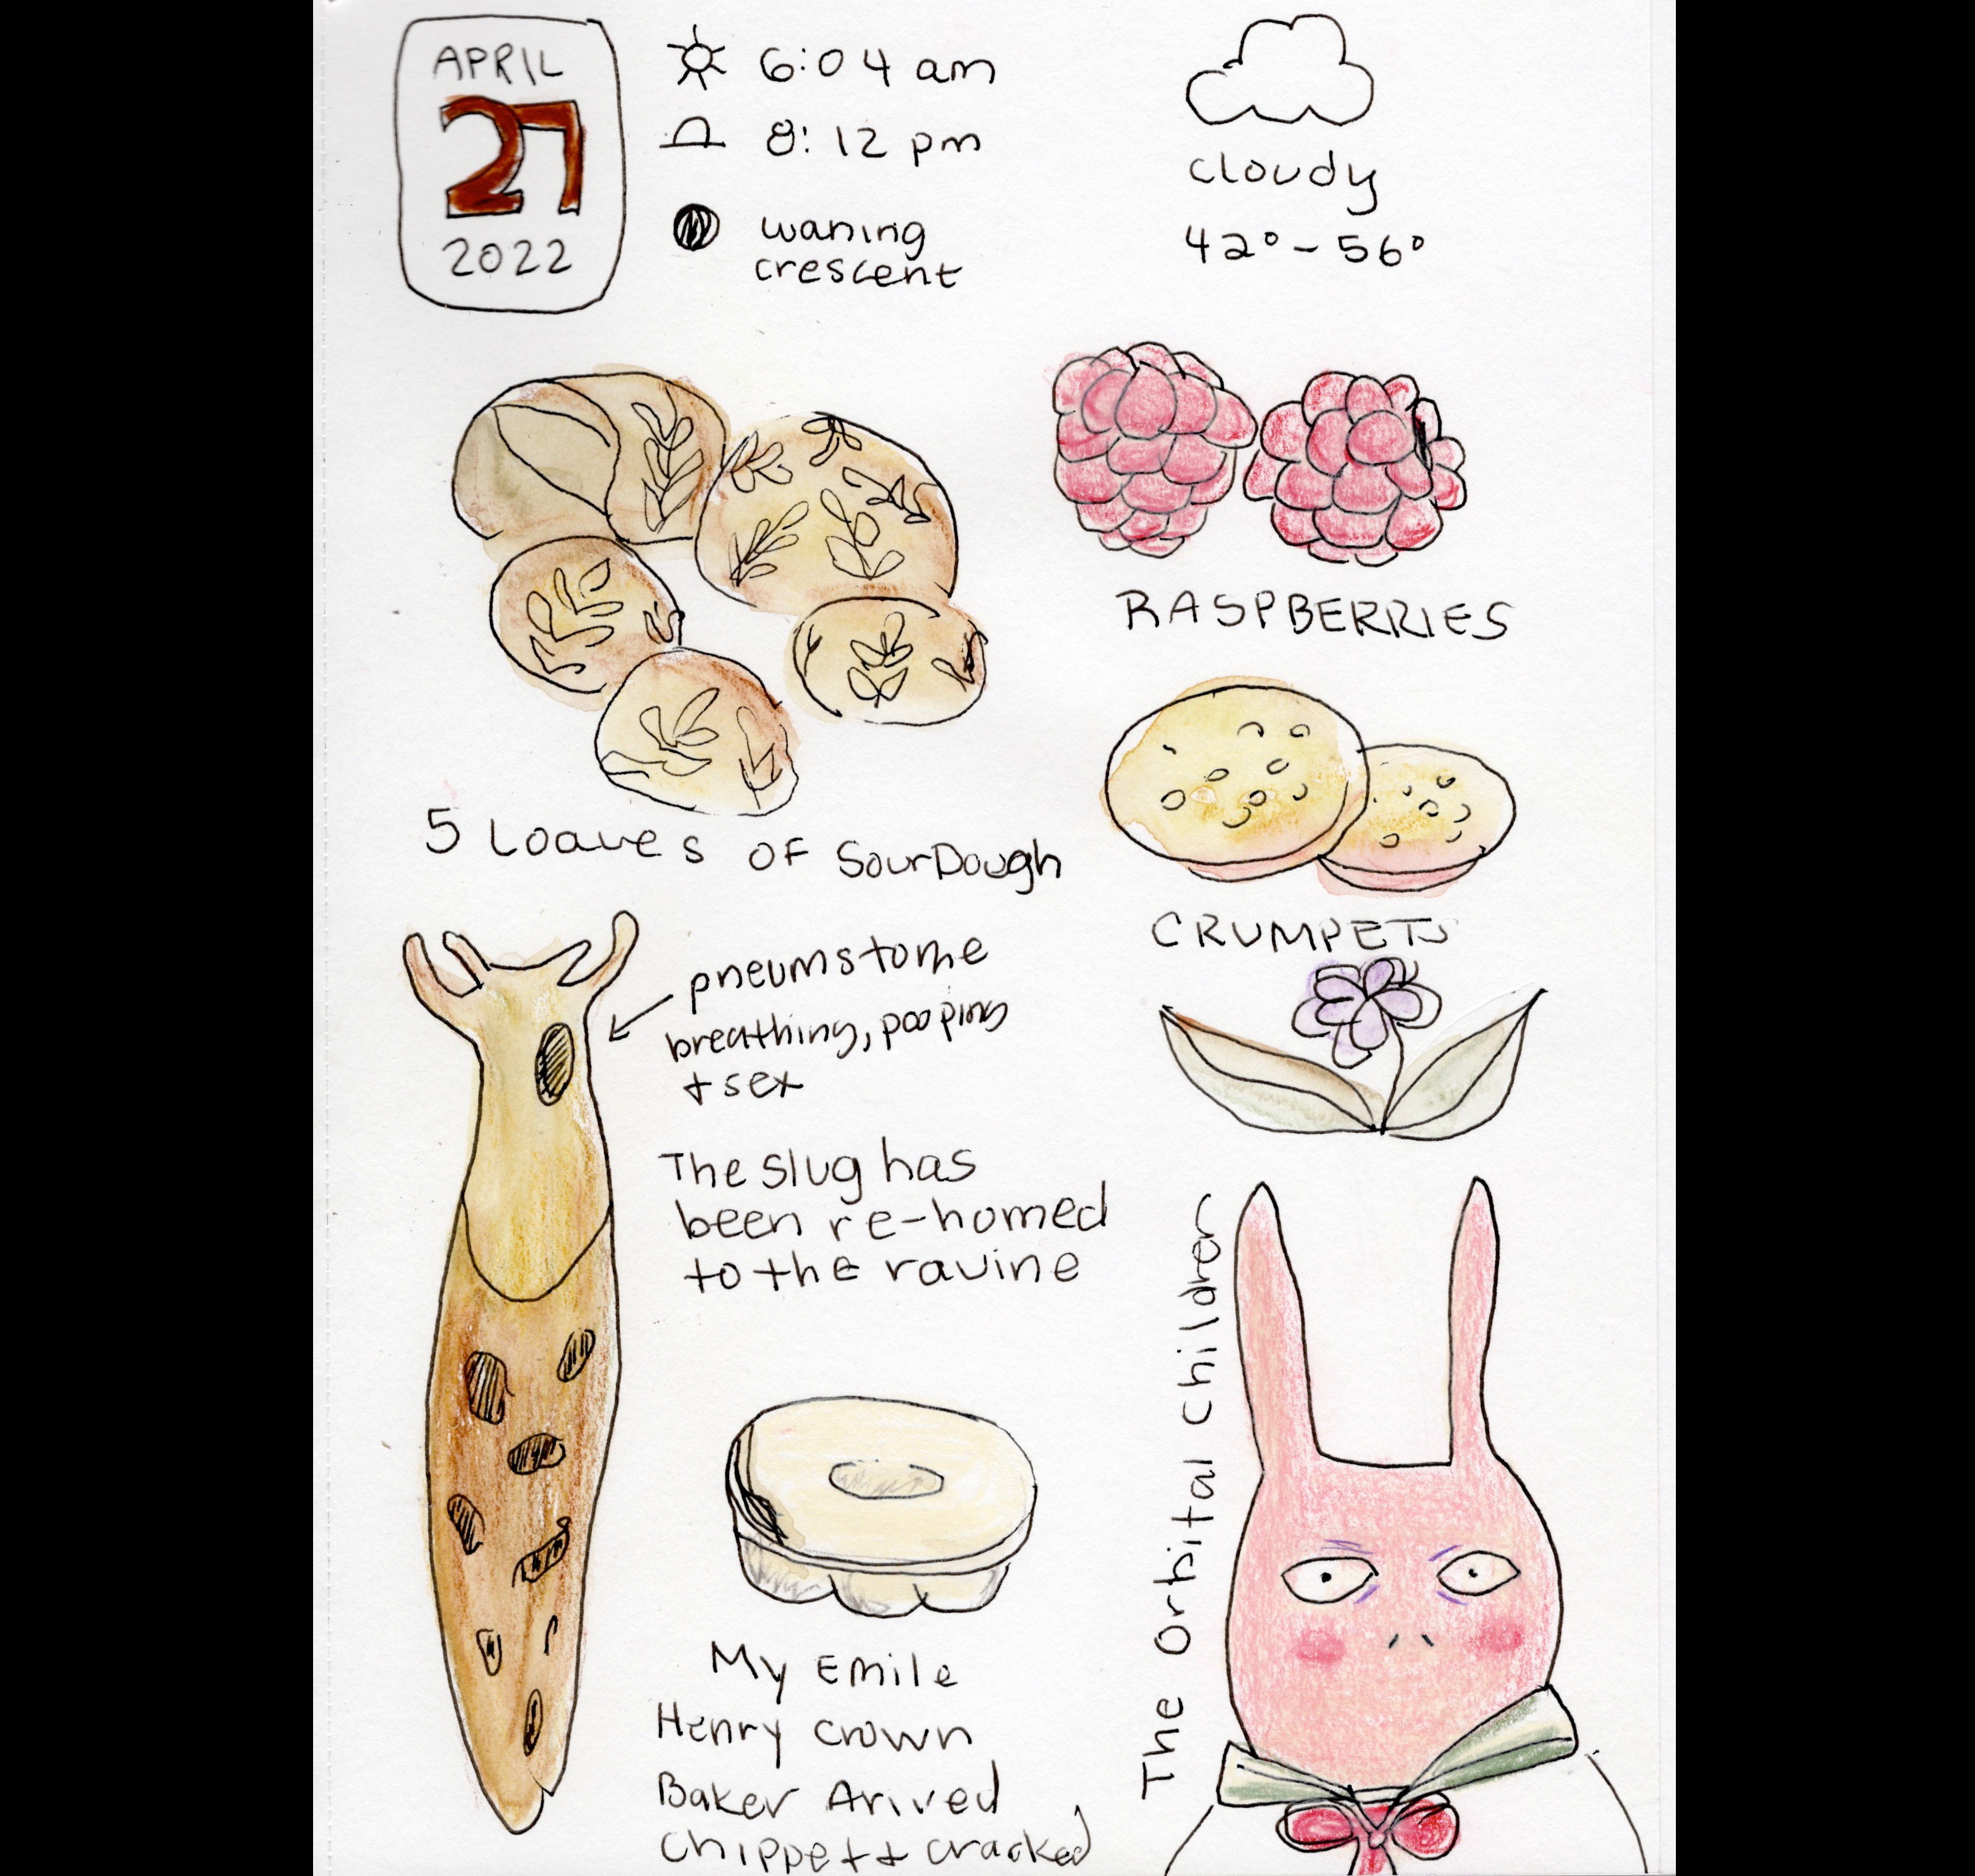 APRIL
27
2022
6:04 am
8:12 pm
waning
crescent
cloudy
42° - 56°
RASPBERRIES
5 Loaves OF SourDough
CRUMPETS
pneumstome
breathing, pooping
+ sex
The slug has
been re-homed
to the ravine
The Orbital Children
My Emile
Henry crown
Baker Arived
chippett cracked